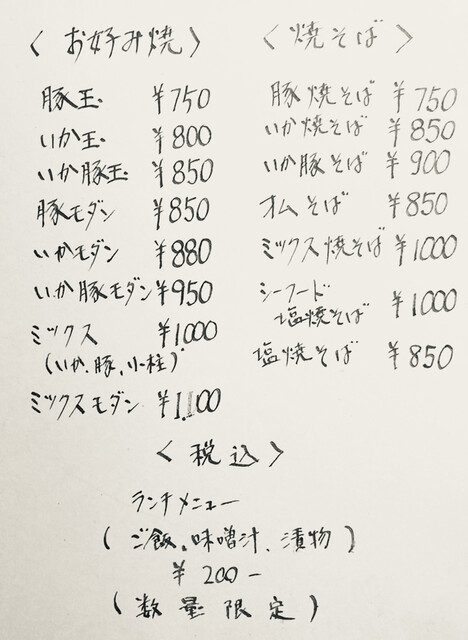 〈お好み焼〉
豚玉 ¥750
いか玉 ¥800
いか豚玉 ¥850
豚モダン ¥850
いかモダン ¥880
いか豚モダン ¥950
ミックス ¥1000
(いか、豚、小柱)
ミックスモダン ¥1,100
〈焼そば〉
豚焼そば ¥750
いか焼そば ¥850
いか豚そば ¥900
オムそば ¥850
ミックス焼そば ¥1000
シーフード
塩焼そば ¥1000
塩焼そば ¥850
〈税込〉
ランチメニュー
(ご飯、味噌汁、漬物)
¥200-
(数量限定)